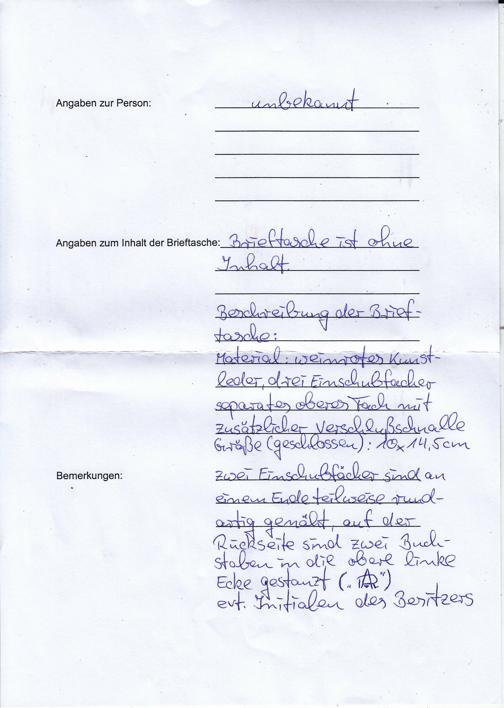 Angaben zur Person: unbekannt
Angaben zum Inhalt der Brieftasche: Brieftasche ist ohne
Inhalt.
Beschreibung der Brief-
tasche:
Material: weinrotes Kunst-
leder, drei Einschubfächer
separates oberes Fach mit
zusätzlicher Verschlußschnalle
Größe (geschlossen): 10x14,5cm
Bemerkungen: zwei Einschubfächer sind an
einem Ende teilweise rund-
artig genäht, auf der
Rückseite sind zwei Buch-
staben in die obere linke
Ecke gestanzt („ “)
evt. Initialen des Besitzers